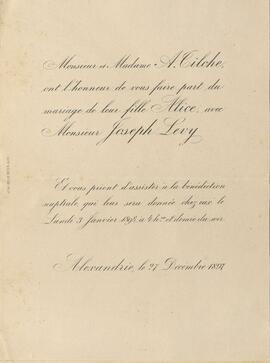 Monsieur et Madame A. Tilche,
ont l'honneur de vous faire part du
mariage de leur fille Alice, avec
Monsieur Joseph Levy.
Et vous prient d'assister à la bénédiction
nuptiale, qui leur sera donnée chez eux le
Lundi 3 Janvier 1898, à 4 h. et demie du soir.
Alexandrie, le 27 Décembre 1897.